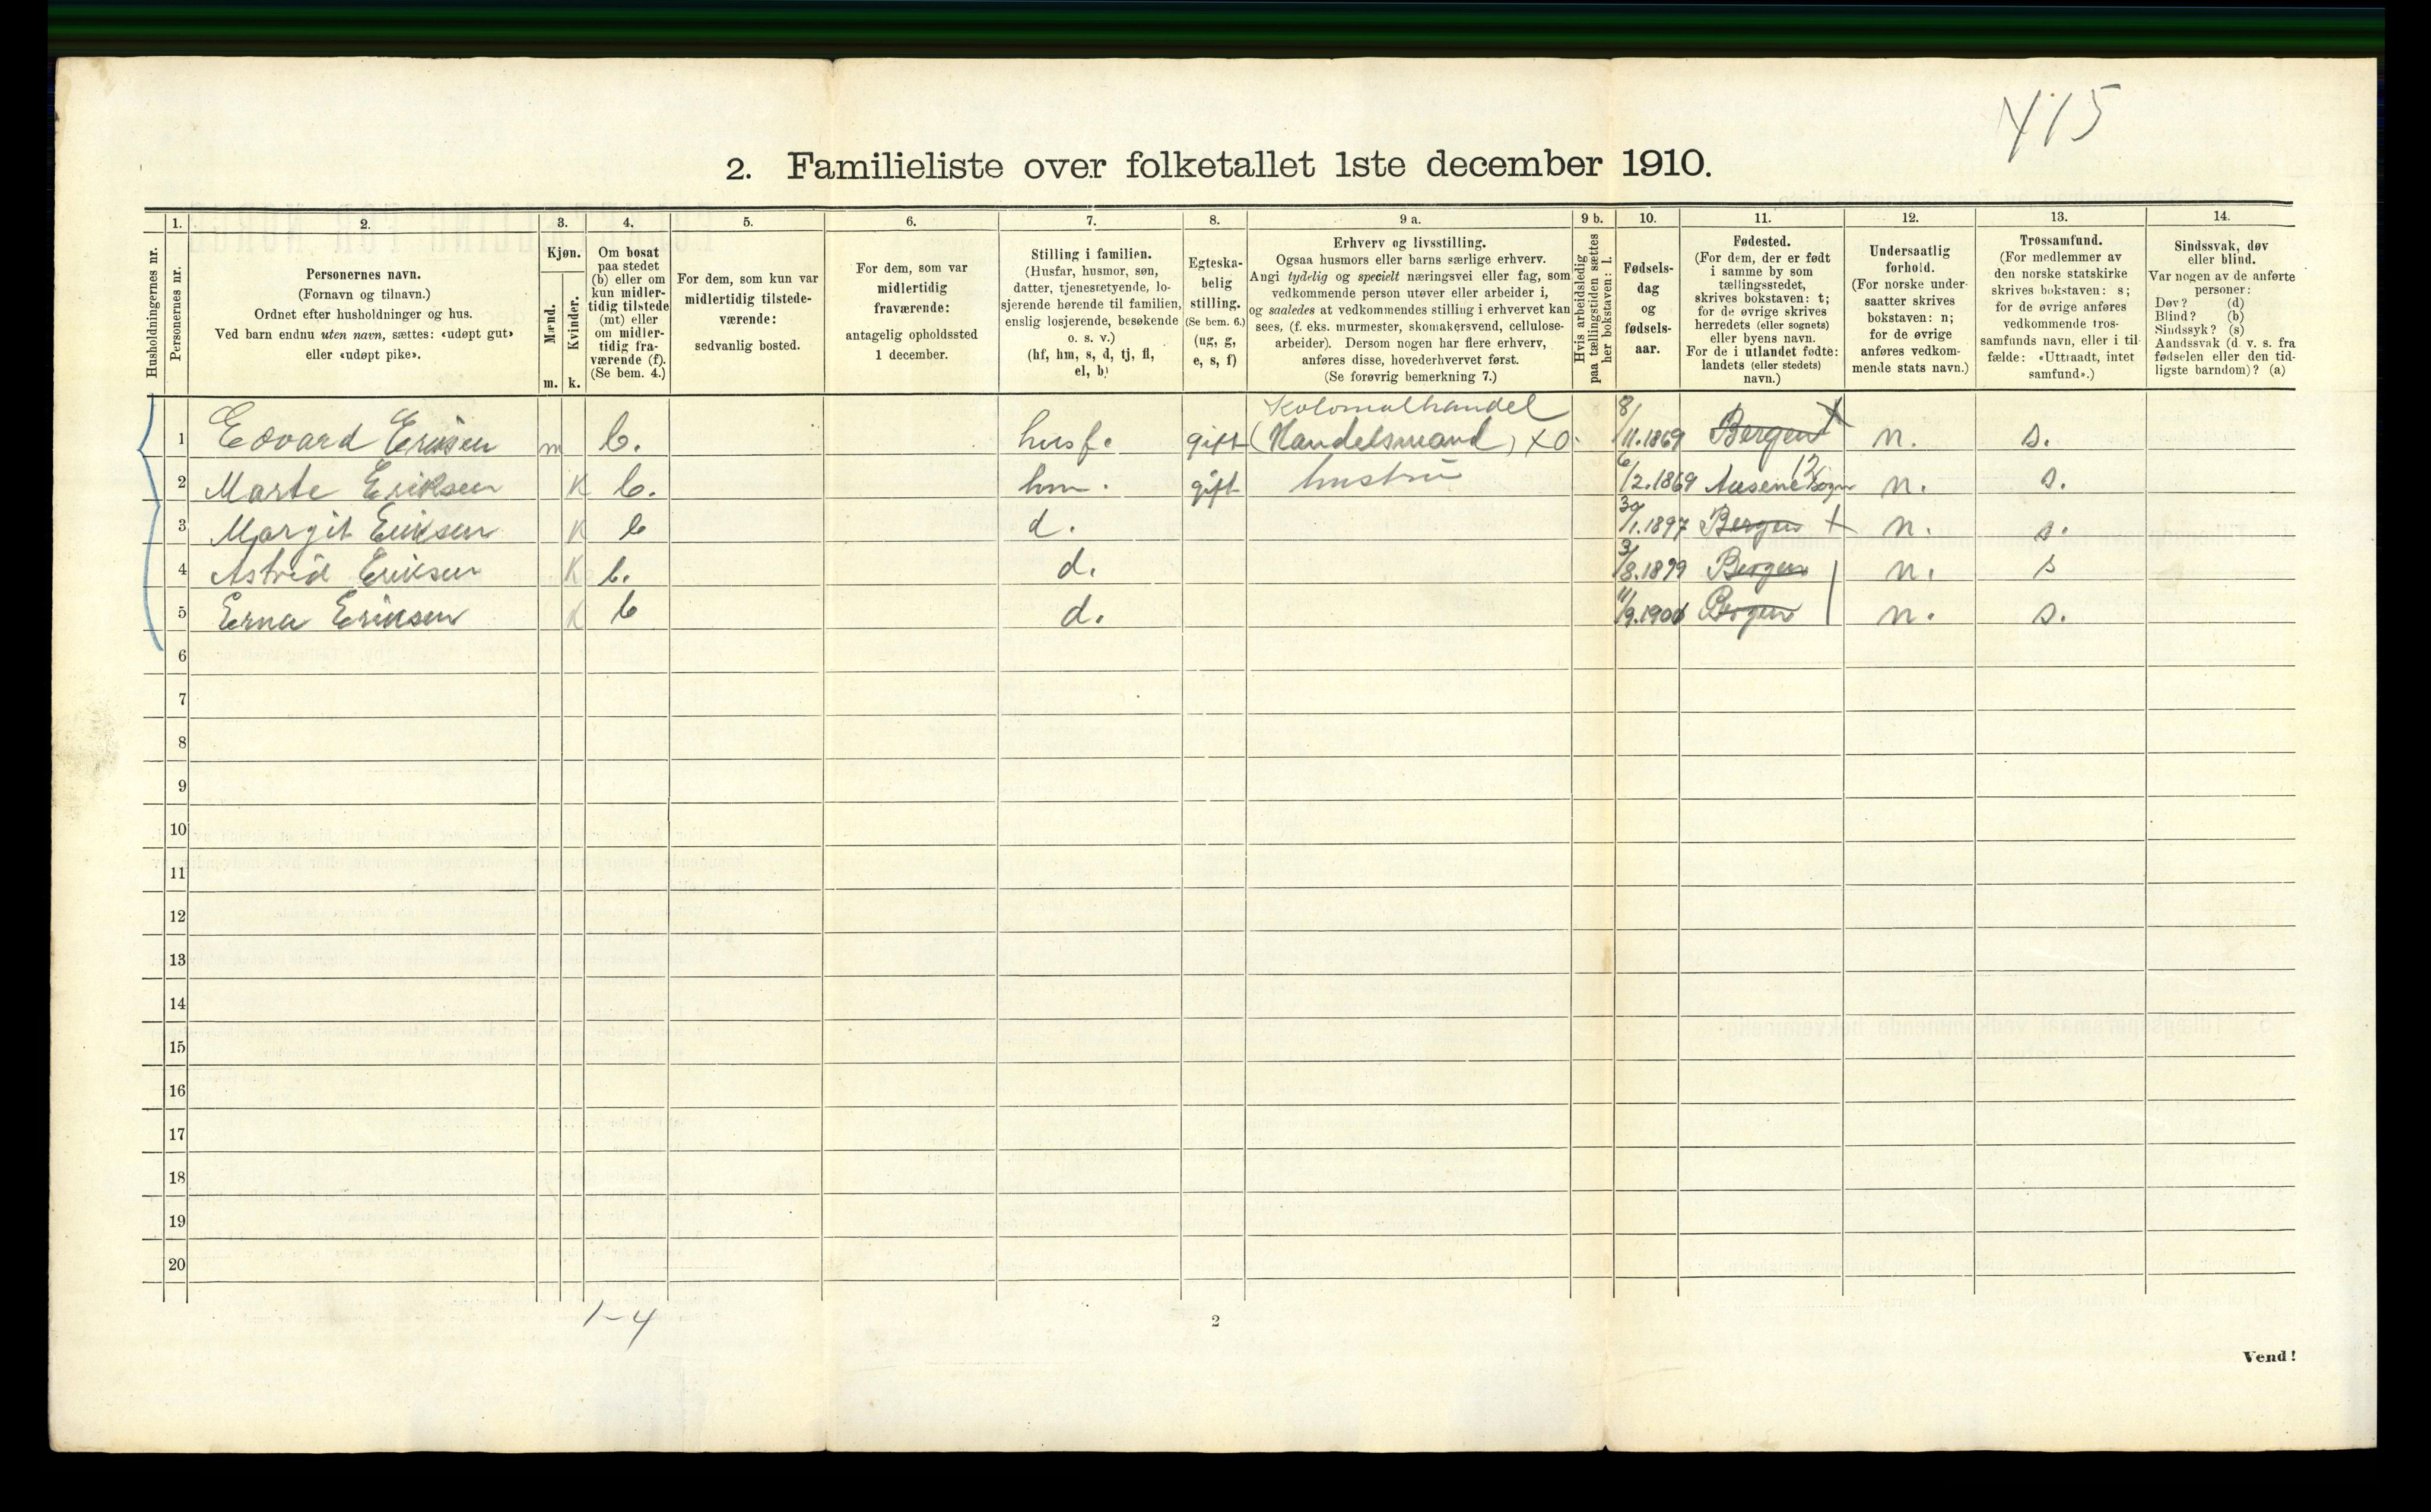 415
2. Familieliste over folketallet 1ste december 1910.
Husholdningernes nr.
1. Personernes nr.
2. Personernes navn.
(Fornavn og tilnavn.)
Ordnet efter husholdninger og hus.
Ved barn endnu uten navn, sættes: «udøpt gut»
eller «udøpt pike».
3. Kjøn.
Mænd. m.
Kvinder. k.
4. Om bosat
paa stedet
(b) eller om
kun midler-
tidig tilstede
(mt) eller
om midler-
tidig fra-
værende (f).
(Se bem. 4.)
5. For dem, som kun var
midlertidig tilstede-
værende:
sedvanlig bosted.
6. For dem, som var
midlertidig
fraværende:
antagelig opholdssted
1 december.
7. Stilling i familien.
(Husfar, husmor, søn,
datter, tjenestetyende, lo-
sjerende hørende til familien,
enslig losjerende, besøkende
o. s. v.)
(hf, hm, s, d, tj, fl,
el, b)
8. Egteska-
belig
stilling.
(Se bem. 6.)
(ug, g,
e, s, f)
9 a. Erhverv og livsstilling.
Ogsaa husmors eller barns særlige erhverv.
Angi tydelig og specielt næringsvei eller fag, som
vedkommende person utøver eller arbeider i,
og saaledes at vedkommendes stilling i erhvervet kan
sees, (f. eks. murmester, skomakersvend, cellulose-
arbeider). Dersom nogen har flere erhverv,
anføres disse, hovederhvervet først.
(Se forøvrig bemerkning 7.)
9 b. Hvis arbeidsledig
paa tællingstiden sættes
her bokstaven: l.
10. Fødsels-
dag
og
fødsels-
aar.
11. Fødested.
(For dem, der er født
i samme by som
tællingsstedet,
skrives bokstaven: t;
for de øvrige skrives
herredets (eller sognets)
eller byens navn.
For de i utlandet fødte:
landets (eller stedets)
navn.)
12. Undersaatlig
forhold.
(For norske under-
saatter skrives
bokstaven: n;
for de øvrige
anføres vedkom-
mende stats navn.)
13. Trossamfund.
(For medlemmer av
den norske statskirke
skrives bokstaven: s;
for de øvrige anføres
vedkommende tros-
samfunds navn, eller i til-
fælde: «Uttraadt, intet
samfund».)
14. Sindssvak, døv
eller blind.
Var nogen av de anførte
personer:
Døv? (d)
Blind? (b)
Sindssyk? (s)
Aandssvak (d. v. s. fra
fødselen eller den tid-
ligste barndom)? (a)
Kolonialhandel
1 Edvard Eriksen m b. husf. gift (Handelsmand) X0. 8/11.1869 Bergen t n. s.
2 Marte Eriksen K b. hm. gift hustru 6/2.1869 12 Sogn n. s.
3 Margit Eriksen K b d. 30/1.1897 Bergen t n. s.
4 Astrid Eriksen K b. d. 3/8.1899 Bergen n. s
5 Erna Eriksen K b d. 11/9.1906 Bergen n. s.
6
7
8
9
10
11
12
13
14
15
16
17
18
19
20
1-4
2
Vend!